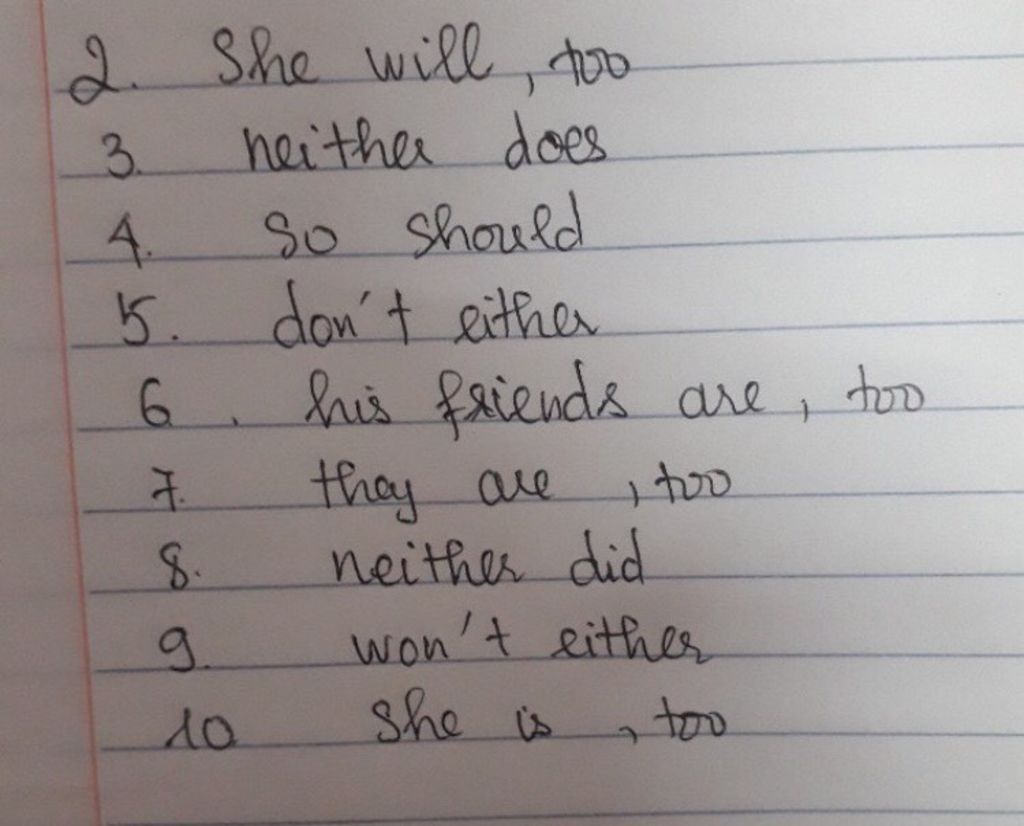 2. She will, too
3. neither does
4. so should
5. don't either
6. his friends are, too
7. they are, too
8. neither did
9. won't either
10 she is, too